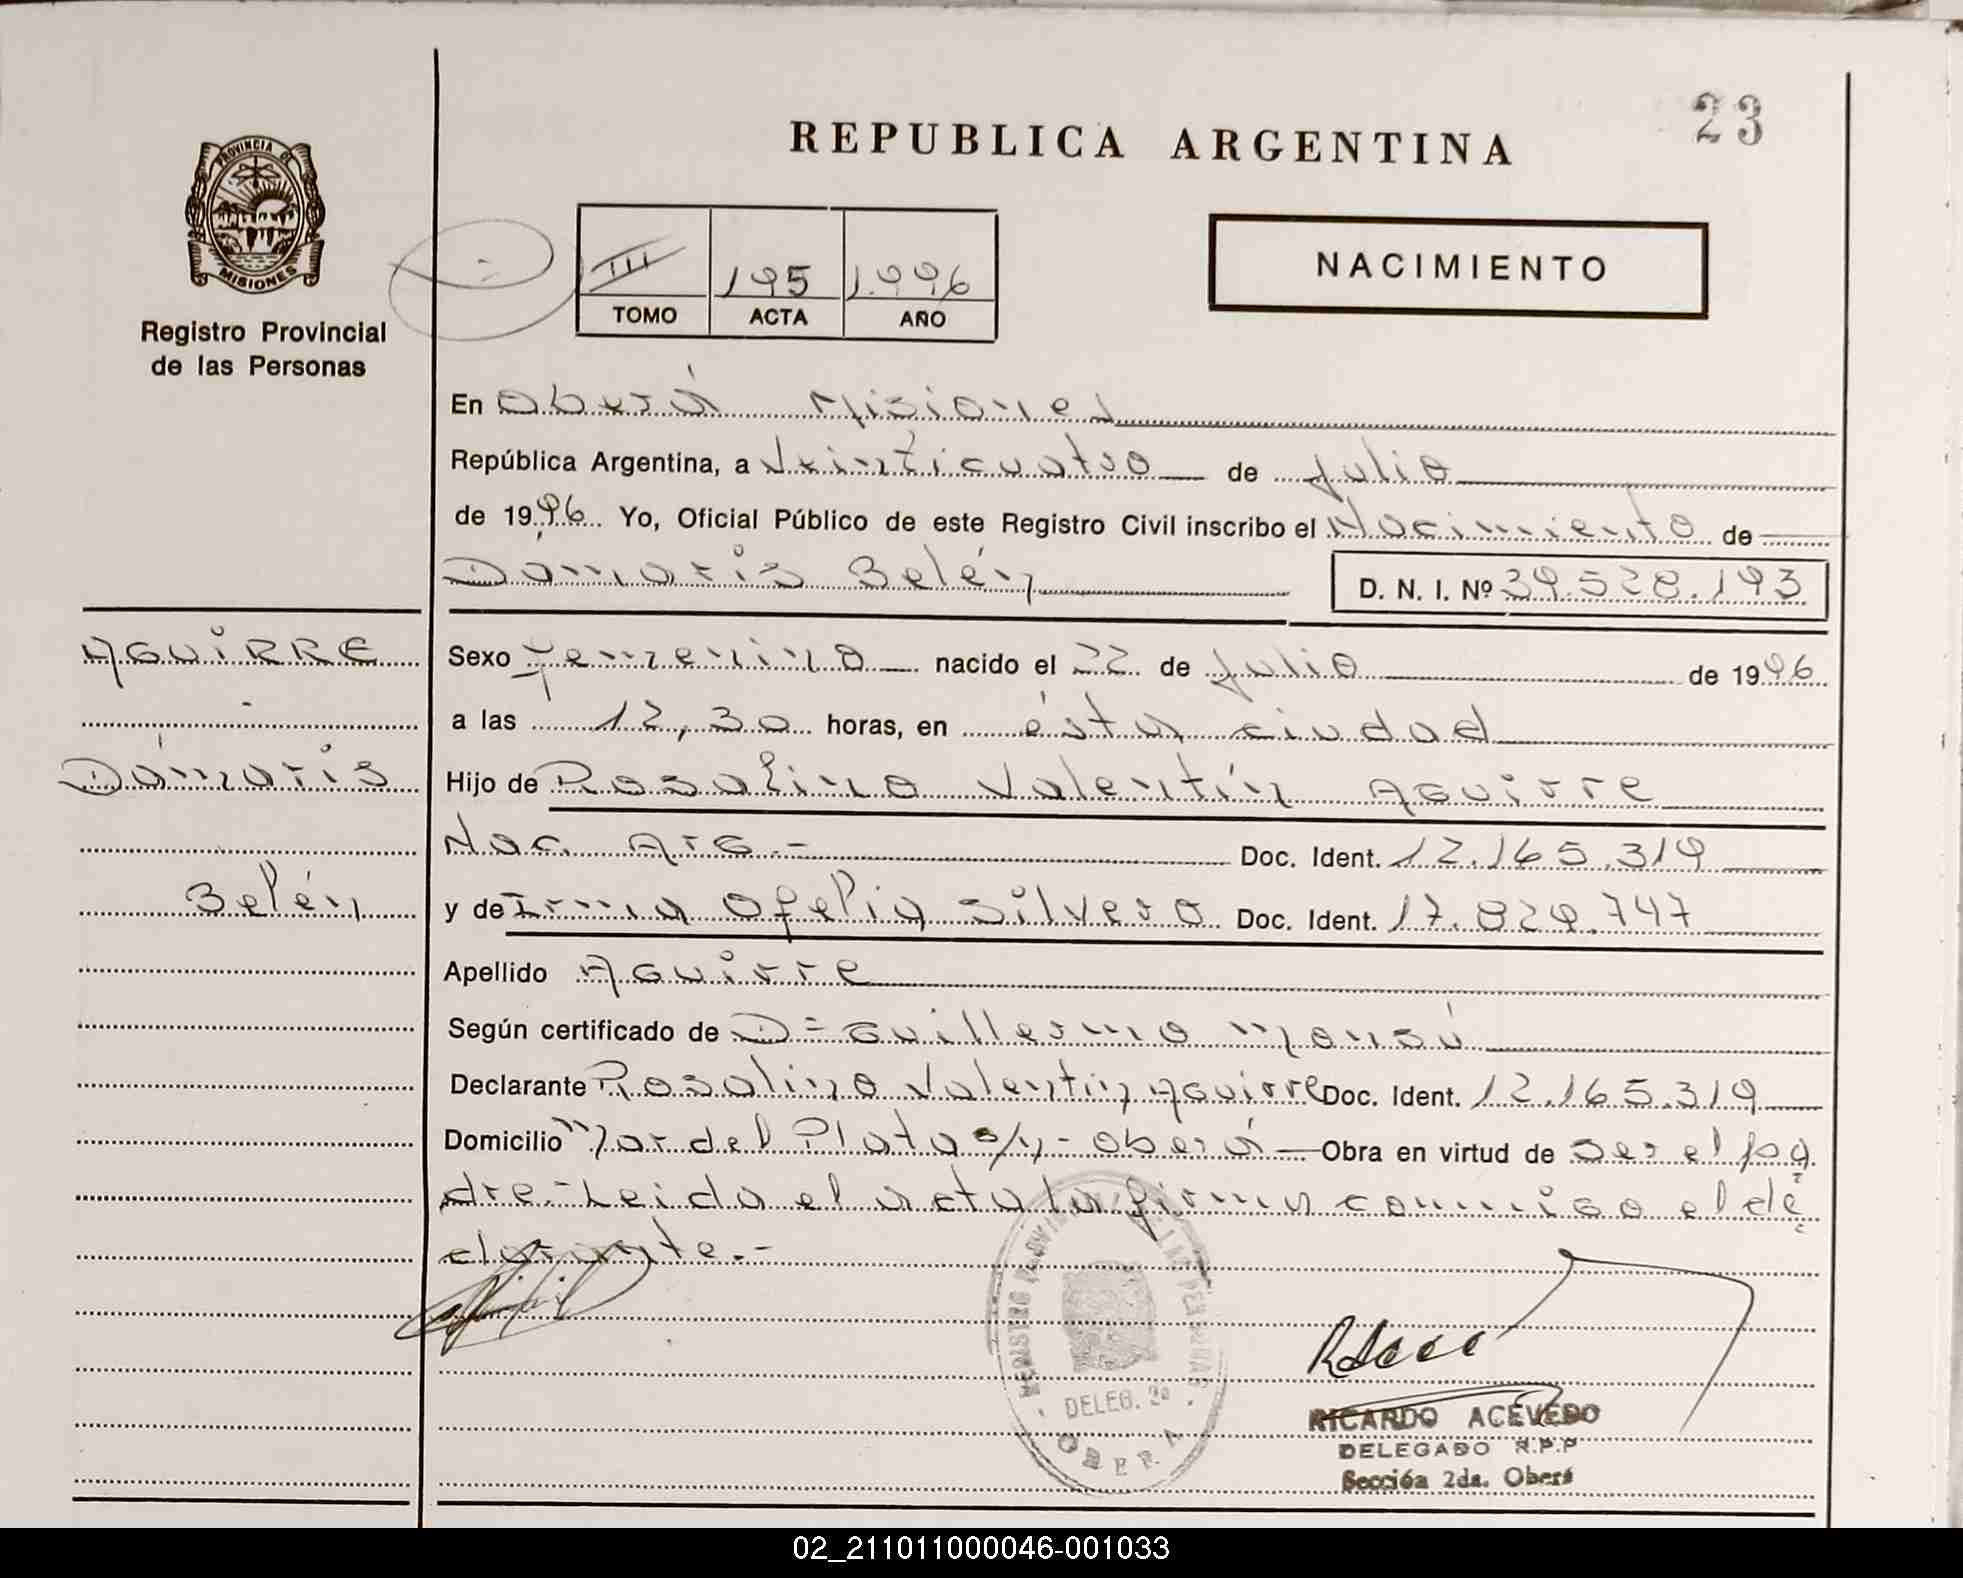 23
REPUBLICA ARGENTINA
PROVINCIA DE
MISIONES
Registro Provincial
de las Personas
III 195 1.996
TOMO ACTA AÑO
NACIMIENTO
En Oberá Misiones
República Argentina, a Veinticuatro de Julio
de 1996. Yo, Oficial Público de este Registro Civil inscribo el Nacimiento de
Dámaris Belén D. N. I. Nº 39.528.193
AGUIRRE
Dámaris
Belén
Sexo Femenino nacido el 22 de Julio de 1996
a las 12,30 horas, en ésta ciudad
Hijo de Rosalino Valentín Aguirre
Nac. Arg.- Doc. Ident. 12.165.319
y de Irma Ofelia Silvero Doc. Ident. 17.829.747
Apellido Aguirre
Según certificado de D= Guillermo Monsú
Declarante Rosalino Valentín Aguirre Doc. Ident. 12.165.319
Domicilio Mar del Plata s/n- Oberá Obra en virtud de ser el pa
dre.- Leida el acta la firma conmigo el de
clarante.-
REGISTRO PROVINCIAL DE LAS PERSONAS
DELEG. 2ª
OBERA
RICARDO ACEVEDO
DELEGADO R.P.P
Sección 2da. Oberá
02_211011000046-001033